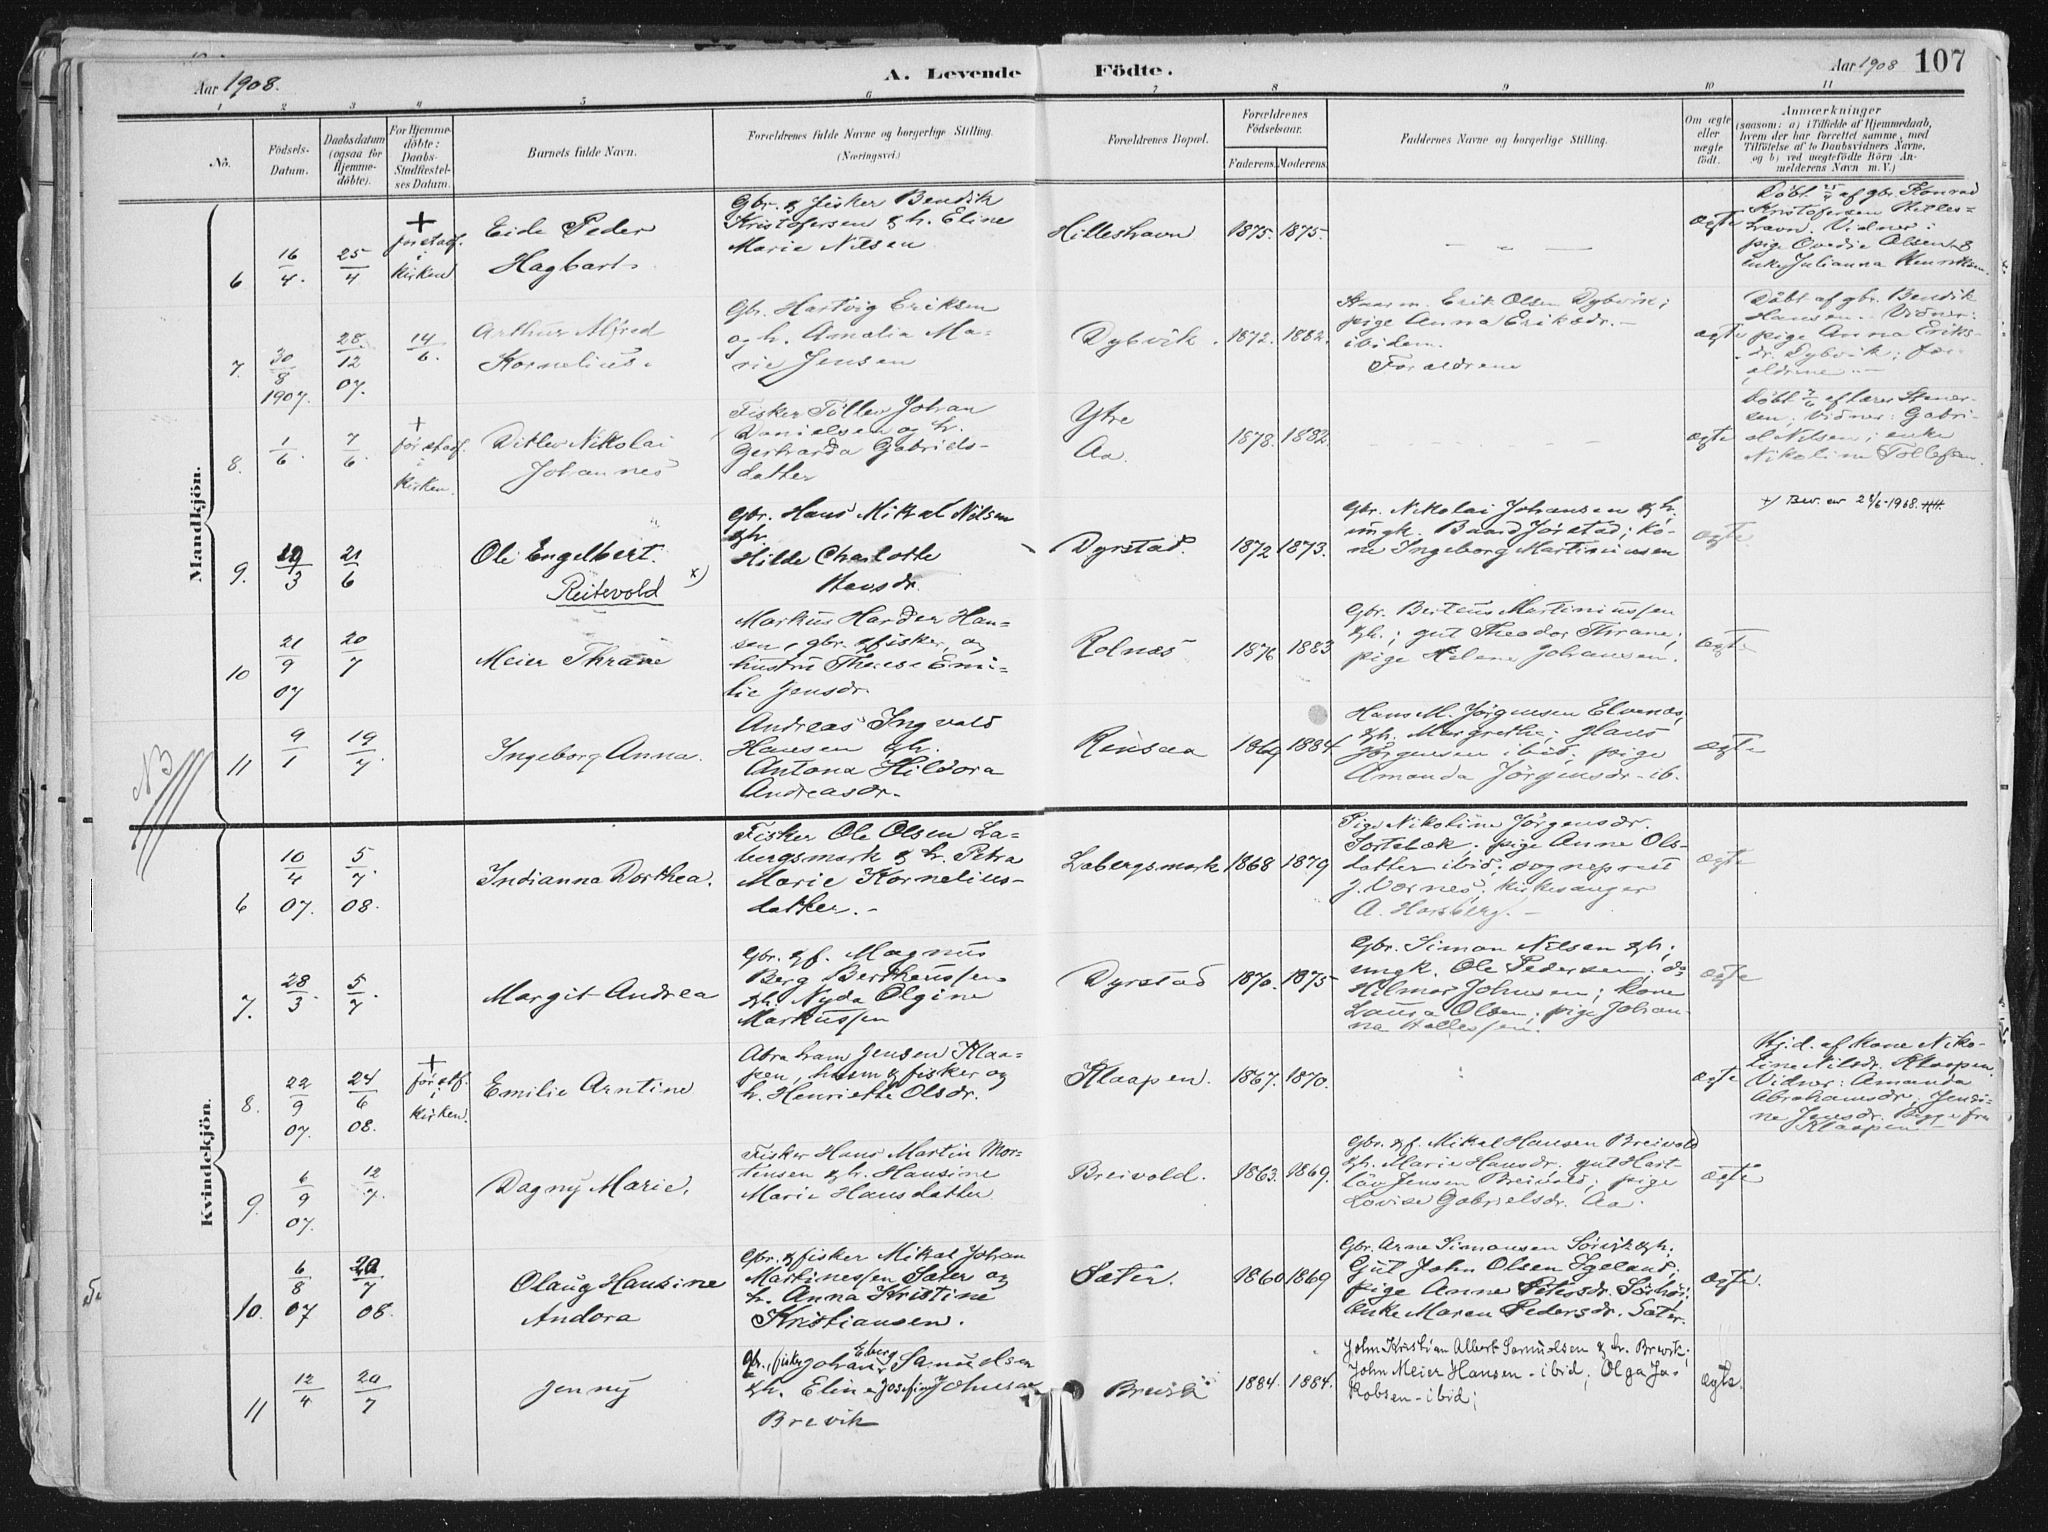 Aar 1908.
A. Levende Födte.
Aar 1908 107
1 2 3 4 5 6 7 8 9 10 11
No.
Födsels-Datum.
Daabsdatum (ogsaa for Hjemmedöbte).
For Hjemmedöbte: Daabs-Stadfæstelses Datum.
Barnets fulde Navn.
Forældrenes fulde Navne og borgerlige Stilling. (Næringsvei.)
Forældrenes Bopæl.
Forældrenes Födselsaar.
Faderens. Moderens.
Faddernes Navne og borgerlige Stilling.
Om ægte eller uægte födt.
Anmærkninger (saasom: a) i Tilfælde af Hjemmedaab, hvem der har forrettet samme, med Tilföielse af to Daabsvidners Navne, og b) ved uægtefödte Börn Anmelderens Navn m. V.)
Mandkjön.
6 16/4. 25/4 + före stadf. i kirken
Eide Peder
Hagbart.
Gbr. & fisker Bendik
Kristofersen & h. Eline
Marie Nilsen
Hilleshavn 1875. 1875. — — — ægte
Döbt 25/4 af gbr. Konrad
Kristofersen Hilles-
havn. Vidner:
pige Ovedie Olsen &
enke Julianna Henriksen.
7. 30/8 1907. 28./12 07. 14/6.
Arthur Alfred
Kornelius.
Gbr. Hartvig Eriksen
og h. Amalia Ma-
rie Jensen
Dybvik. 1872. 1882.
Husm. Erik Olsen Dybvik;
pige Anna Eriksdr. –
ibidem.
Forældrene
ægte
Döbt af gbr. Bendik
Hansen. Vidner:
pige Anna Eriks-
dr. Dybvik; for-
ældrene. –
8. 1/6. 7/6. + för stadf. i kirken.
Ditlev Nikolai
Johannes
Fisker Tollev Johan
Danielsen og h.
Gerharda Gabriels-
datter
Ytre
Aa. 1878. 1882. ægte
Döbt 7/6 af lærer Stener-
sen; Vidner: Gabri-
el Nilsen; enke
Nikoline Tollefsen.
9. /3 21/6
Ole Engelbert.
Reitevold x)
Gbr. Hans Mikal Nilsen
& h.
Hilde Charlotte
Hansdr.
Dyrstad. 1872 1873.
Gbr. Nikolai Johansen & h.
ungk. Baard Jörstad; ko-
ne Ingeborg Martinussen
ægte.
x) Bev. av 2 /6-1968.
10 21/9 07 20/7
Meier Thrane
Markus Harder Han-
sen, gbr. & fisker, og
hustru Therese Emi-
lie Jensdr.
Rolnes 1876 1883
Gbr. Berteus Martiniussen
& h.; gut Theodor Thrane;
pige Helene Johansen.
ægte
11 9/1 19/7
Ingeborg Anna.
Andreas Ingvald
Hansen & h.
Antona Hildora
Andreasdr.
Rinsaa 1869 1884
Hans M. Jörgensen Elvenes,
& h. Margrethe; Hans
Jörgensen ibid; pige
Amanda Jörgensdr. ib.
ægte
NB
Kvindekjön.
6 10/4 07. 5/7. 08.
Indianna Dorthea.
Fisker Ole Olsen La-
bergsmark & h. Petra
Marie Kornelius-
datter. –
Labergsmark 1868 1879
Pige Nikoline Jörgensdr.
Sortebæk; pige Anne Ols-
datter ibid; sogneprest
J. Værnes; kirkesanger
A. Horsberg. –
ægte
7. 28/3. 5/7.
Margit Andrea
Gbr. & f. Magnus
Berg Bertheussen
& h. Nyda Olgine
Markussen
Dyrstad 1870. 1875
Gbr. Simon Nilsen & h;
ungk. Ole Pedersen; do
Hilmar Johnsen; kone
Laura Olsen; pige Johan-
na Hallessen.
ægte
8. 22/9 07. 24/6 08. + för stf. i kirken.
Emilie Arntine
Abraham Jensen Klaa-
pen, husm & fisker og
h. Henriette Olsdr.
Klaapen. 1867. 1870. ægte
Hjd. af kone Niko-
line Nilsdr. Klaapen.
Vidner: Amanda
Abrahamsdr, Jensi-
ne Jensdr. Begge fra
Klaapen
9. 6/9 07. 12/7.
Dagny Marie.
Fisker Hans Martin Mor-
tensen & h. Hansine
Marie Hansdatter.
Breivold. 1863. 1869.
Gbr. & f. Mikal Hansen Breivold
& h. Marie Hansdr; gut Hart-
löv Jensen Breivold; pige
Lovise Gabrielsdr. Aa.
ægte
10. 6/8 07 20/7 08.
Olaug Hansine
Andora
Gbr. & fisker Mikal Johan
Martinessen Sæter og
h. Anna Kristine
Kristiansen.
Sæter. 1860 1869
Gbr. Arne Simonsen Sörvik & h;
Gut John Olsen Igeland;
pige Anne Petersdr. Sörhö;
Enke Maren Pedersdr. Sæter.
ægte.
11 12/4 20/7
Jenny
Gbr. & fisker Johan Eberg Samuelsen
& h. Eline Josefine Johnsen
Brevik
Brevik 1884. 1884.
John Kristian Albert Samuelsen & h. Brevik;
John Meier Hansen – ibid; Olga Ja-
kobsen – ibid;
ægte.